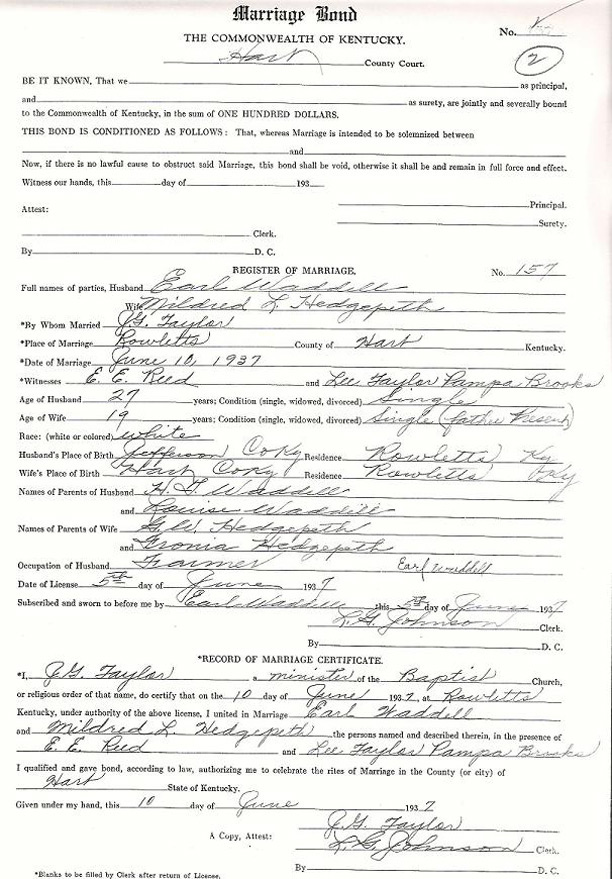 Marriage Bond
THE COMMONWEALTH OF KENTUCKY.
No.
Hart County Court.
2
BE IT KNOWN, That we as principal,
and as surety, are jointly and severally bound
to the Commonwealth of Kentucky, in the sum of ONE HUNDRED DOLLARS.
THIS BOND IS CONDITIONED AS FOLLOWS: That, whereas Marriage is intended to be solemnized between
and
Now, if there is no lawful cause to obstruct said Marriage, this bond shall be void, otherwise it shall be and remain in full force and effect.
Witness our hands, this day of 193
Principal.
Attest:
Surety.
Clerk.
By D. C.
REGISTER OF MARRIAGE. No. 157
Full names of parties, Husband Earl Waddell
Wife Mildred L. Hedgepeth
*By Whom Married J.G. Taylor
*Place of Marriage Rowletts County of Hart Kentucky.
*Date of Marriage June 10, 1937
*Witnesses E. E. Reed and Lee Taylor Pampa Brooks
Age of Husband 27 years; Condition (single, widowed, divorced) Single
Age of Wife 19 years; Condition (single, widowed, divorced) Single (father Present)
Race: (white or colored) white
Husband's Place of Birth Jefferson Co Ky Residence Rowletts Ky
Wife's Place of Birth Hart Co Ky Residence Rowletts Ky
Names of Parents of Husband H. Waddill
and Louise Waddill
Names of Parents of Wife G.W. Hedgepeth
and Fronia Hedgepeth
Occupation of Husband Farmer Earl Waddell
Date of License 5th day of June 1937
Subscribed and sworn to before me by Earl Waddell this 5th day of June 1937
L. G. Johnson Clerk.
By D. C.
*RECORD OF MARRIAGE CERTIFICATE.
*I, J.G. Taylor a minister of the Baptist Church,
or religious order of that name, do certify that on the 10 day of June 1937, at Rowletts
Kentucky, under authority of the above license, I united in Marriage Earl Waddell
and Mildred L. Hedgepeth the persons named and described therein, in the presence of
E. E. Reed and Lee Taylor Pampa Brooks
I qualified and gave bond, according to law, authorizing me to celebrate the rites of Marriage in the County (or city) of
Hart State of Kentucky.
Given under my hand, this 10 day of June 1937
J.G. Taylor
A Copy, Attest: L. G. Johnson Clerk.
By D. C.
*Blanks to be filled by Clerk after return of License.